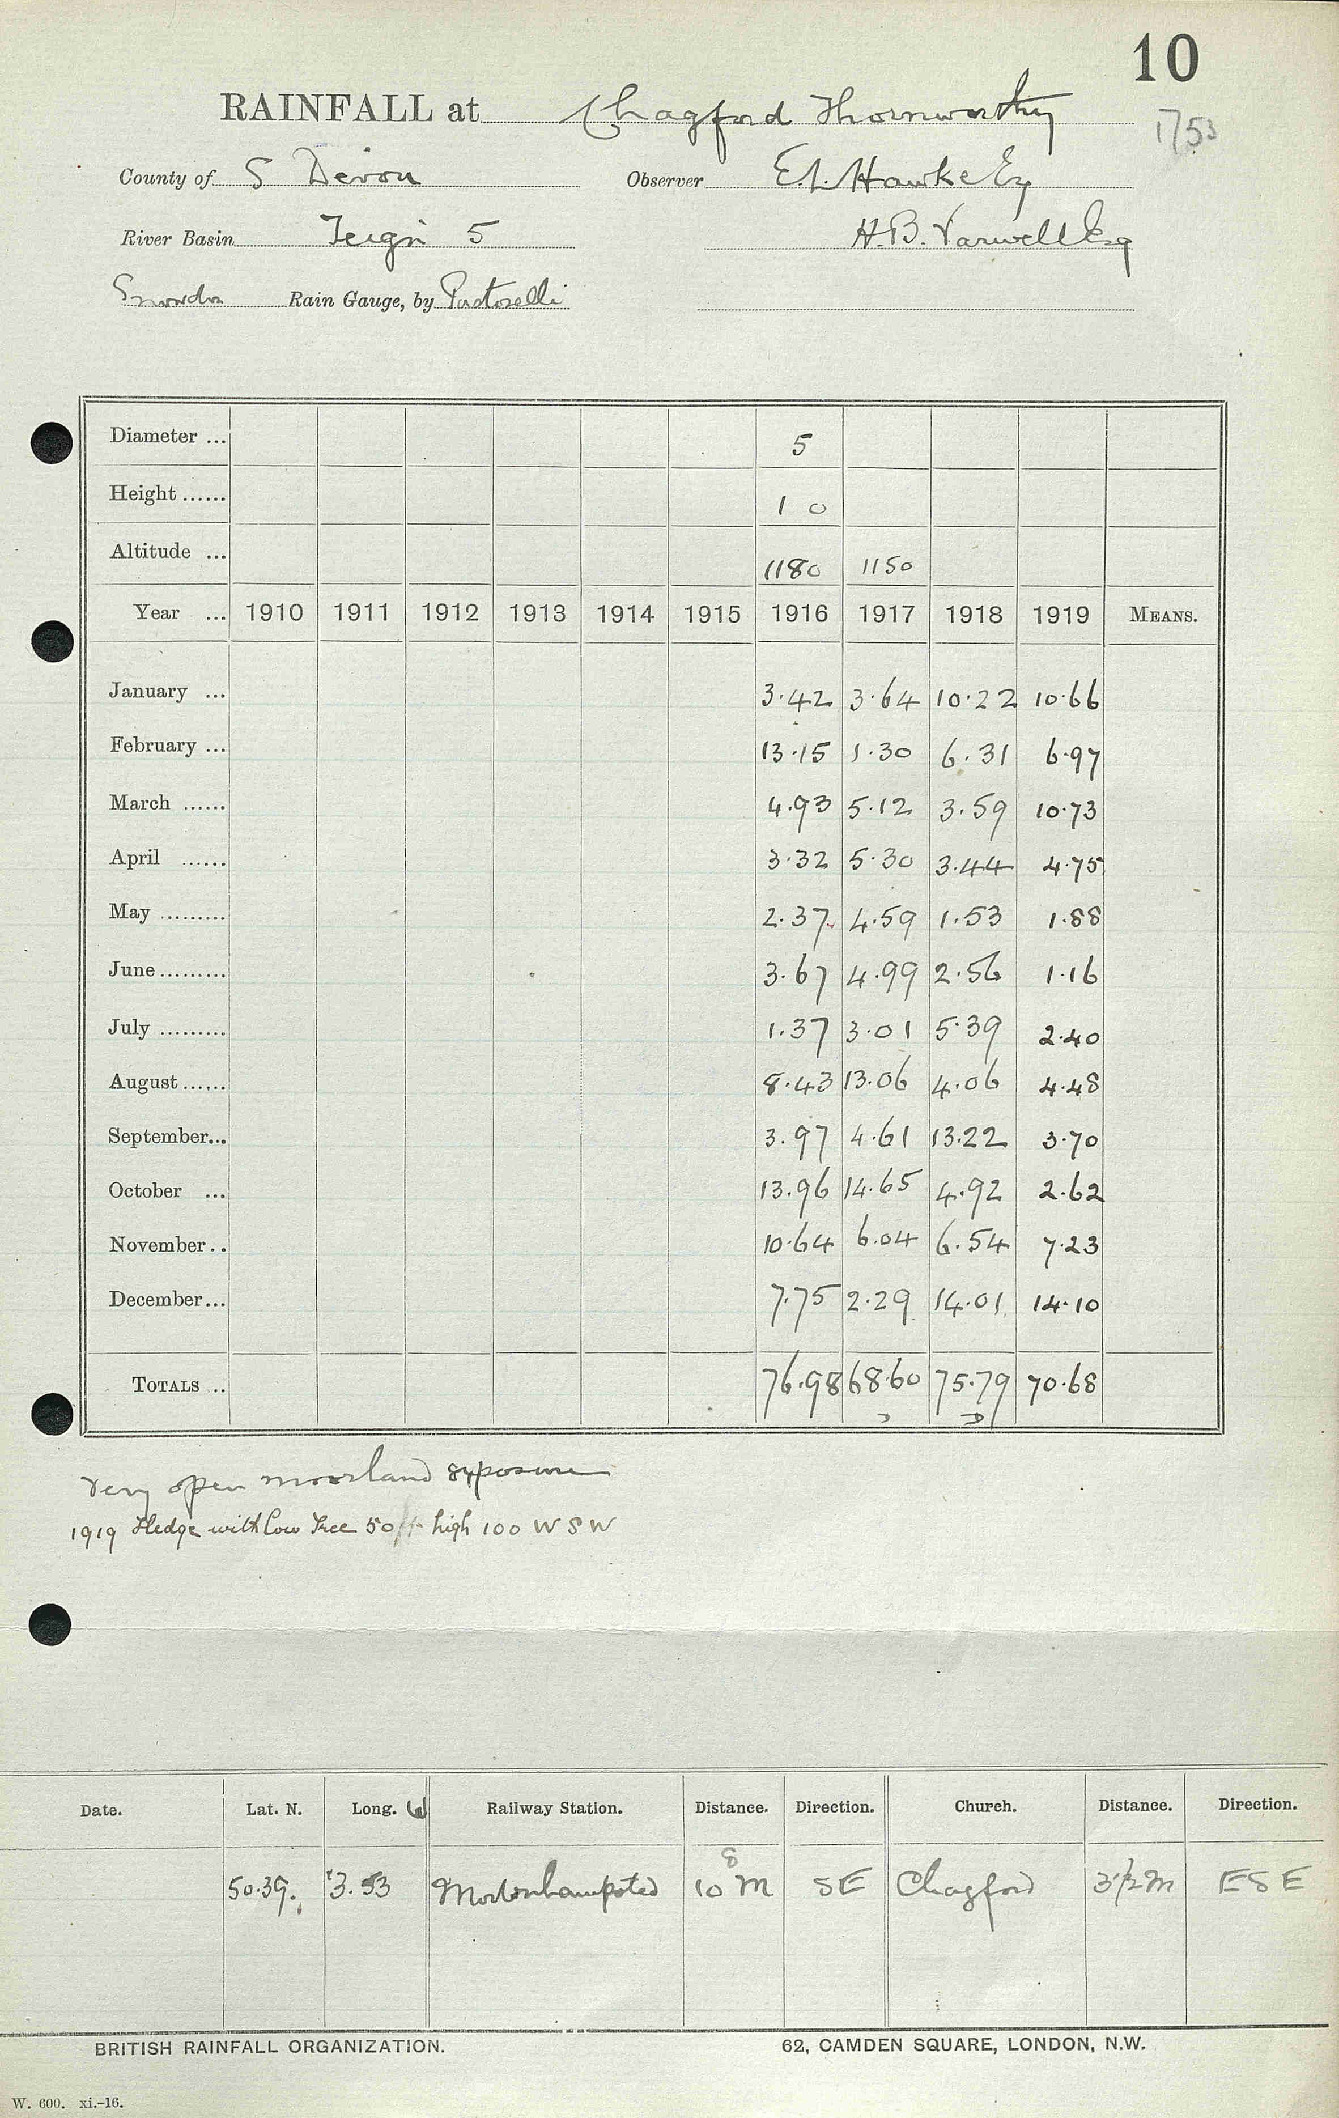 10
RAINFALL at Chagford Thornworthy
1753
County of S Devon Observer E.L. Hawke Esq
River Basin Teign 5 H.B. Varwell Esq
Snowdon Rain Gauge, by Pastorelli
Diameter ... 5
Height ...... 1 0
Altitude ... 1180 1150
Year ... 1910 1911 1912 1913 1914 1915 1916 1917 1918 1919 MEANS.
January ... 3.42 3.64 10.22 10.66
February ... 13.15 1.30 6.31 6.97
March ...... 4.93 5.12 3.59 10.73
April ...... 3.32 5.30 3.44 4.75
May ......... 2.37 4.59 1.53 1.88
June ......... 3.67 4.99 2.56 1.16
July ......... 1.37 3.01 5.39 2.40
August ...... 8.43 13.06 4.06 4.48
September... 3.97 4.61 13.22 3.70
October ... 13.96 14.65 4.92 2.62
November .. 10.64 6.04 6.54 7.23
December... 7.75 2.29 14.01 14.10
TOTALS .. 76.98 68.60 75.79 70.68
Very open moorland exposure
1919 Hedge with low Tree 50 ft high 100 W S W
Date. Lat. N. Long. W Railway Station. Distance. Direction. Church. Distance. Direction.
8
50.39. 3.53 Mortonhampsted 10 M SE Chagford 3 1/2 m ESE
BRITISH RAINFALL ORGANIZATION. 62, CAMDEN SQUARE, LONDON, N.W.
W. 600. xi.-16.